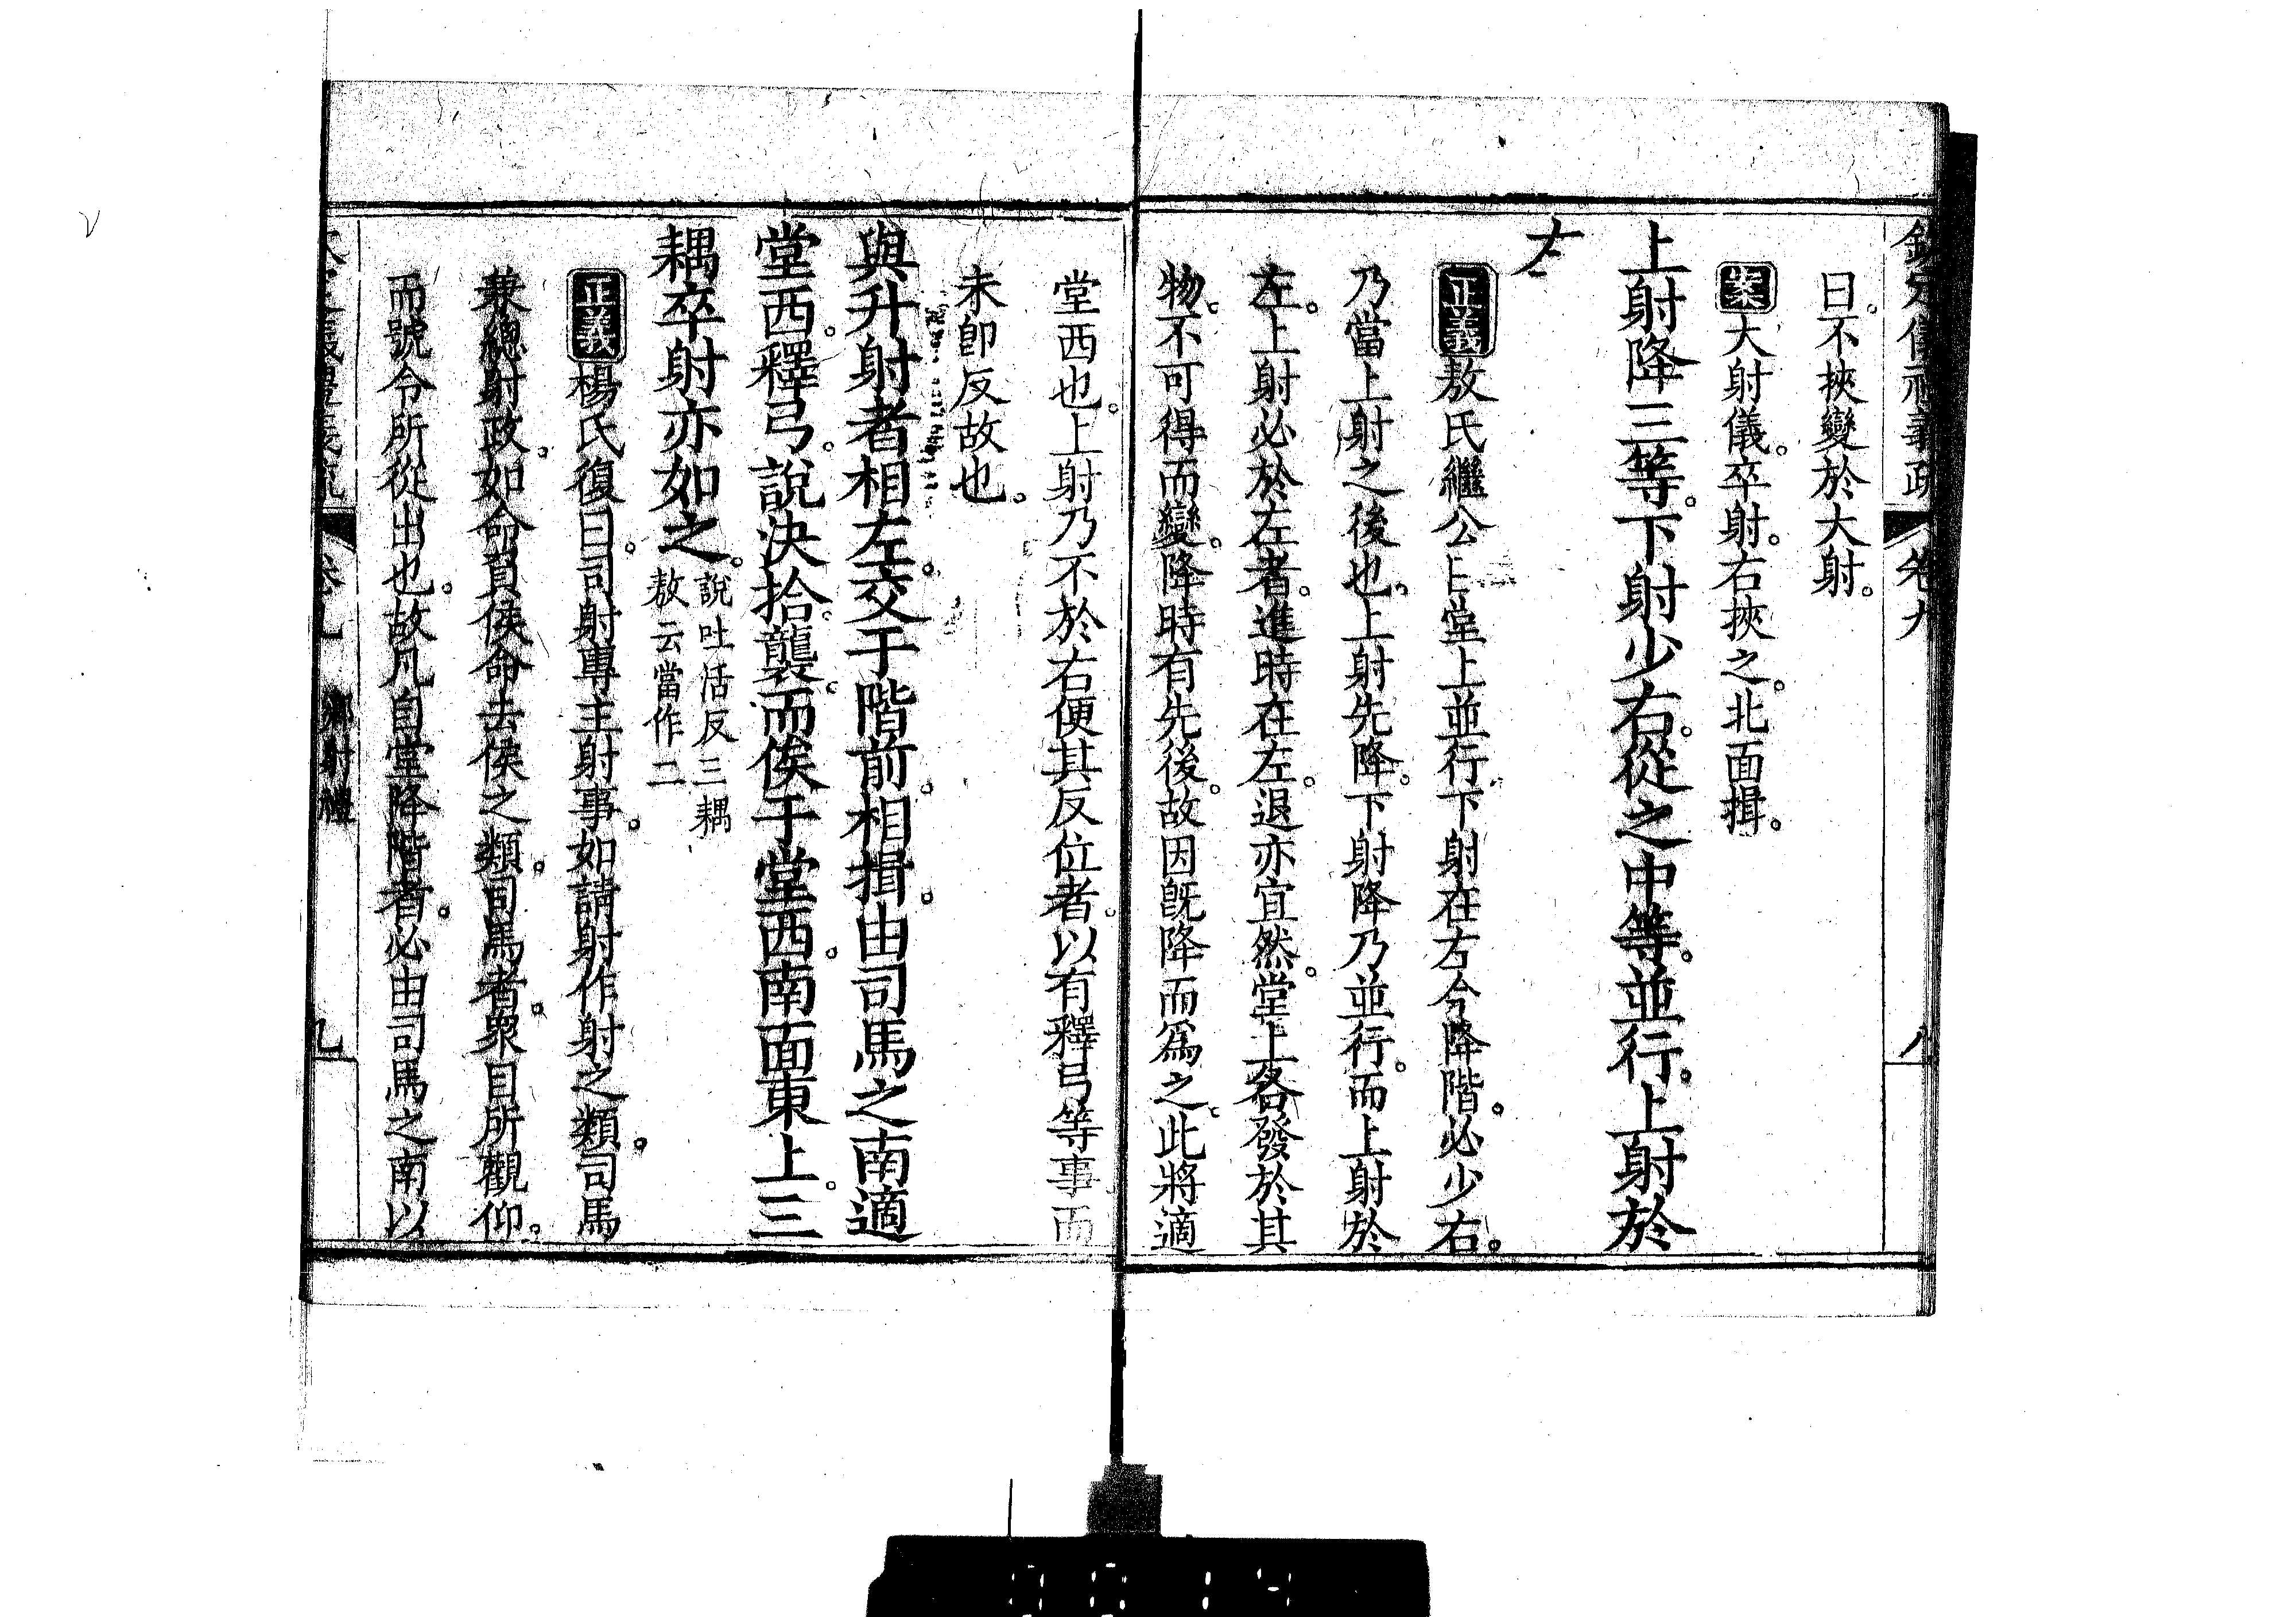 欽定儀禮義疏 卷九 八
曰。不挾變於大射。
案大射儀。卒射。右挾之。北面揖。
上射降三等。下射少右。從之中等。並行。上射於
左
正義敖氏繼公曰堂上並行下射在右今降階。必少右。
乃當上射之後也。上射先降。下射降乃並行。而上射於
左。上射必於左者。進時在左。退亦宜然。堂上各發於其
物。不可得而變。降時有先後。故因旣降而爲之。此將適
堂西也。上射乃不於右便其反位者。以有釋弓等事而
未卽反故也。
與升射者相左。交于階前。相揖。由司馬之南適
堂西。釋弓。說決拾。襲。而俟于堂西。南面東上。三
耦卒射亦如之。
說吐活反三耦
敖云當作二
正義楊氏復曰。司射專主射事。如請射作射之類。司馬
兼總射政。如命負侯命去侯之類。司馬者。衆目所觀仰。
而號令所從出也。故凡自堂降階者。必由司馬之南以
鄕射禮 九